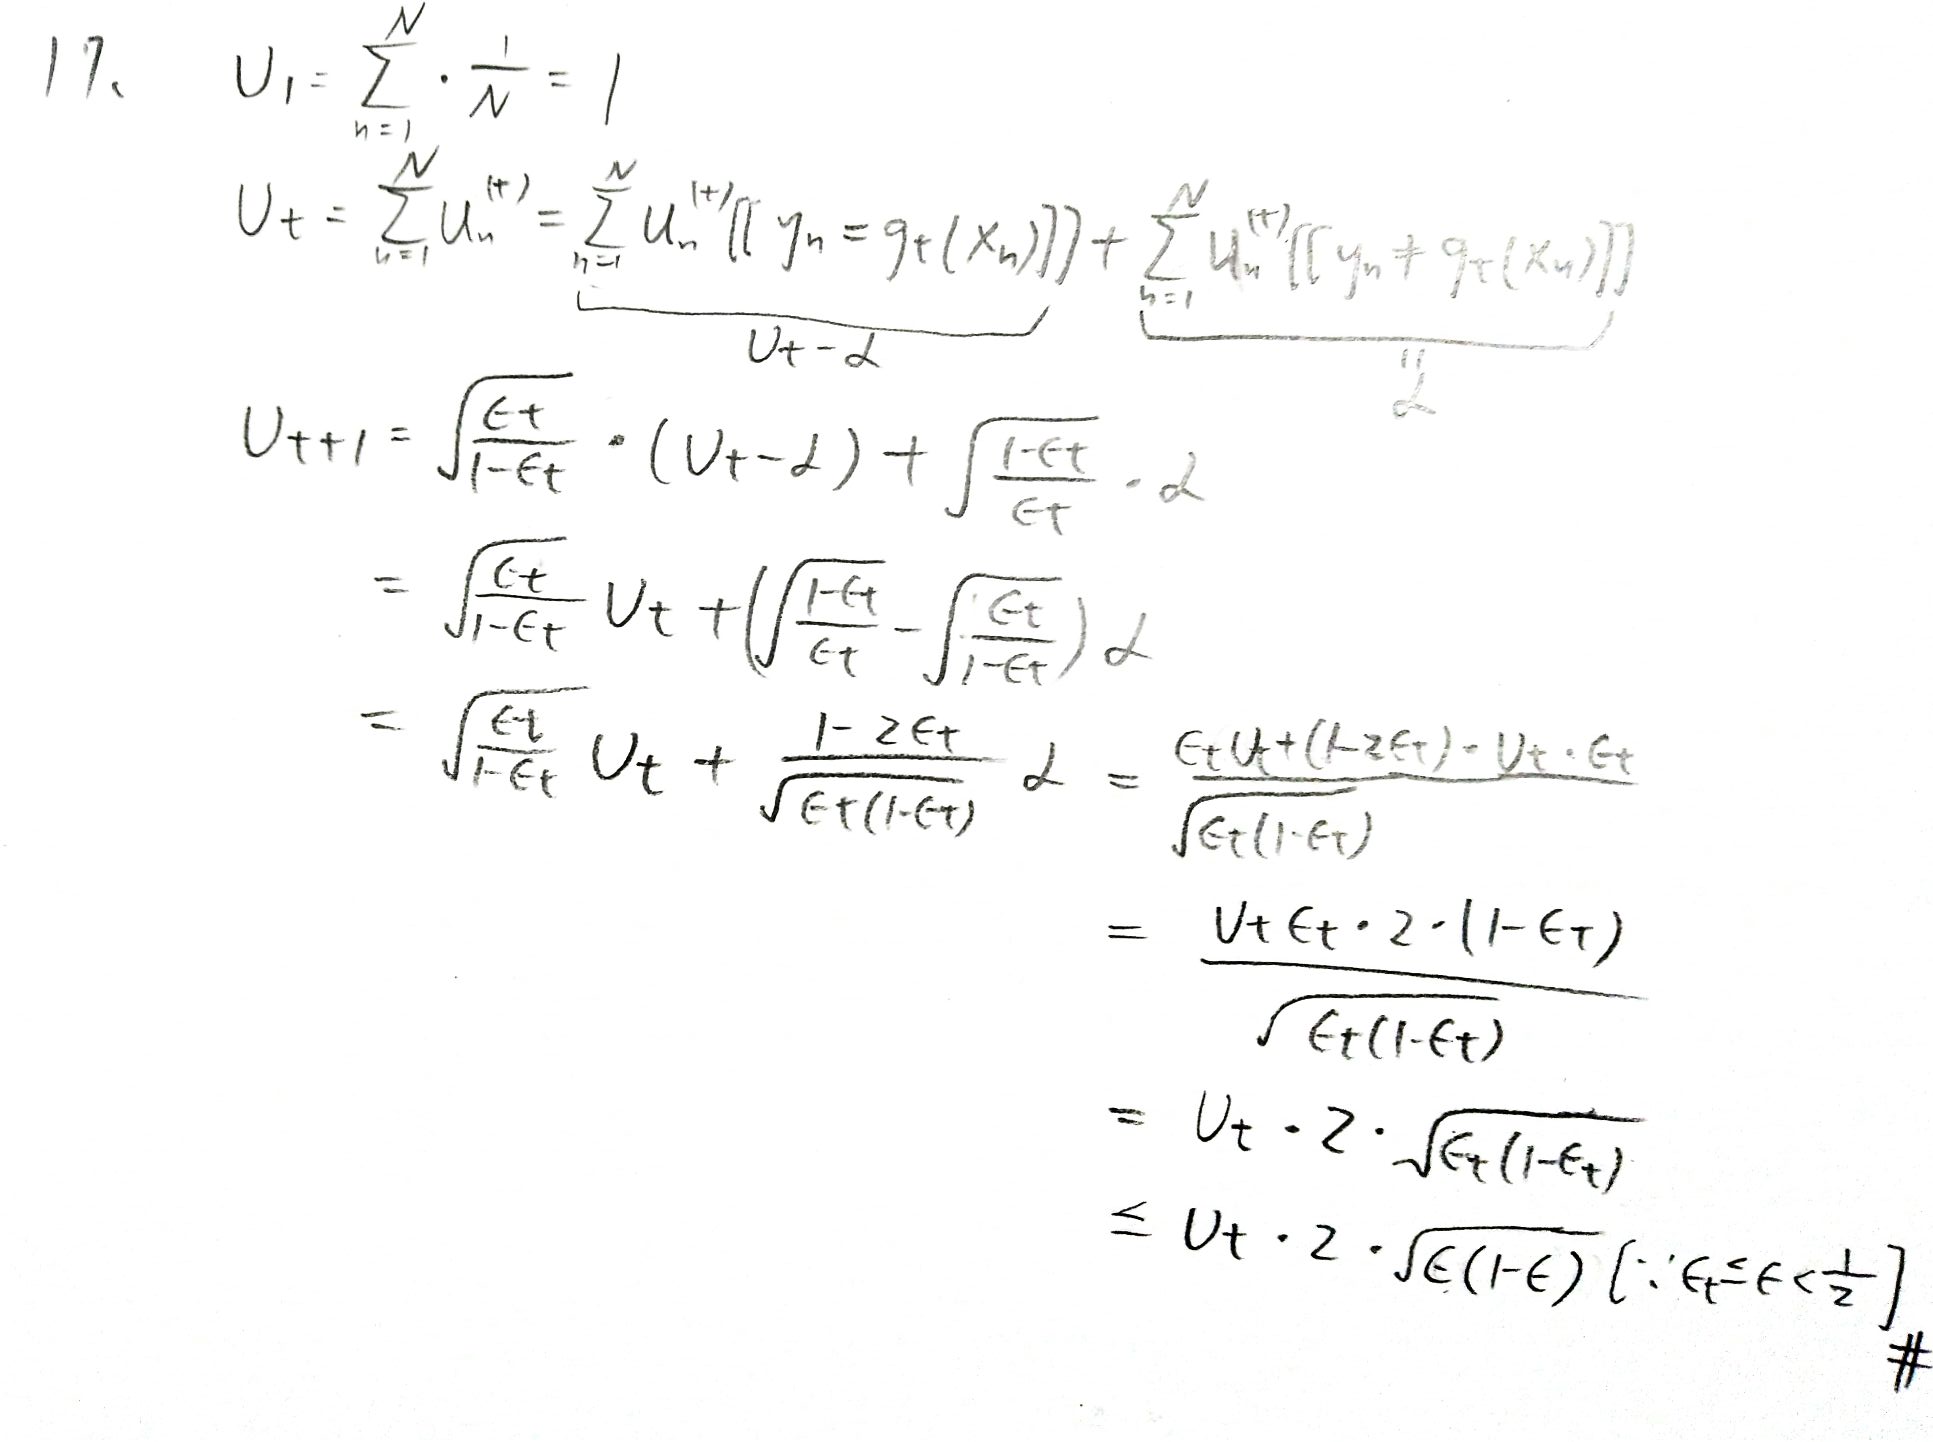 17. U₁ = ∑_{n=1}^{N} · 1/N = 1
U_t = ∑_{n=1}^{N} u_n^{(t)} = ∑_{n=1}^{N} u_n^{(t)} [[y_n = g_t(x_n)]] + ∑_{n=1}^{N} u_n^{(t)} [[y_n ≠ g_t(x_n)]]
U_t - α
" α
U_{t+1} = √(ε_t/(1-ε_t)) · (U_t - α) + √((1-ε_t)/ε_t) · α
= √(ε_t/(1-ε_t)) U_t + (√((1-ε_t)/ε_t) - √(ε_t/(1-ε_t))) α
= √(ε_t/(1-ε_t)) U_t + (1-2ε_t)/√(ε_t(1-ε_t)) α = (ε_t U_t + (1-2ε_t) · U_t · ε_t)/√(ε_t(1-ε_t))
= (U_t ε_t · 2 · (1-ε_t))/√(ε_t(1-ε_t))
= U_t · 2 · √(ε_t(1-ε_t))
≤ U_t · 2 · √(ε(1-ε)) [∵ ε_t ≤ ε < 1/2]
#